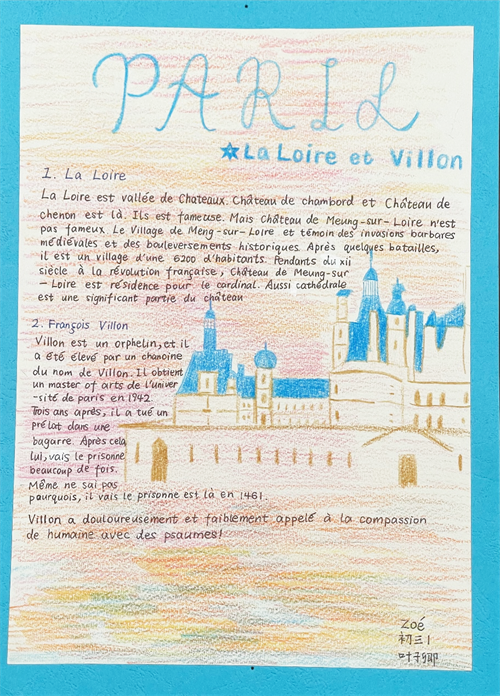 PARIS
★La Loire et Villon
1. La Loire
La Loire est vallée de Chateaux. Château de chambord et Château de
chenon est là. Ils est fameuse. Mais Château de Meung-sur-Loire n'est
pas fameux. Le Village de Meng-sur-Loire et témoin des invasions barbares
médiévales et des bouleversements historiques. Après quelques batailles,
il est un village d'une 6200 d'habitants. Pendants du xii
siècle à la révolution française, Château de Meung-sur
-Loire est résidence pour le cardinal. Aussi cathédrale
est une significant partie du château
2. François Villon
Villon est un orphelin, et il
a été élevé par un chanoine
du nom de Villon. Il obtient
un master of arts de l'univer
-sité de paris en 1942.
Trois ans après, il a tué un
prélat dans une
bagarre. Après cela
lui, vais le prisonne
beaucoup de fois.
Même ne sai pas
pourquois, il vais le prisonne est là en 1461.
Villon a douloureusement et faiblement appelé à la compassion
de humaine avec des psaumes!
Zoé
初三1
叶子卿